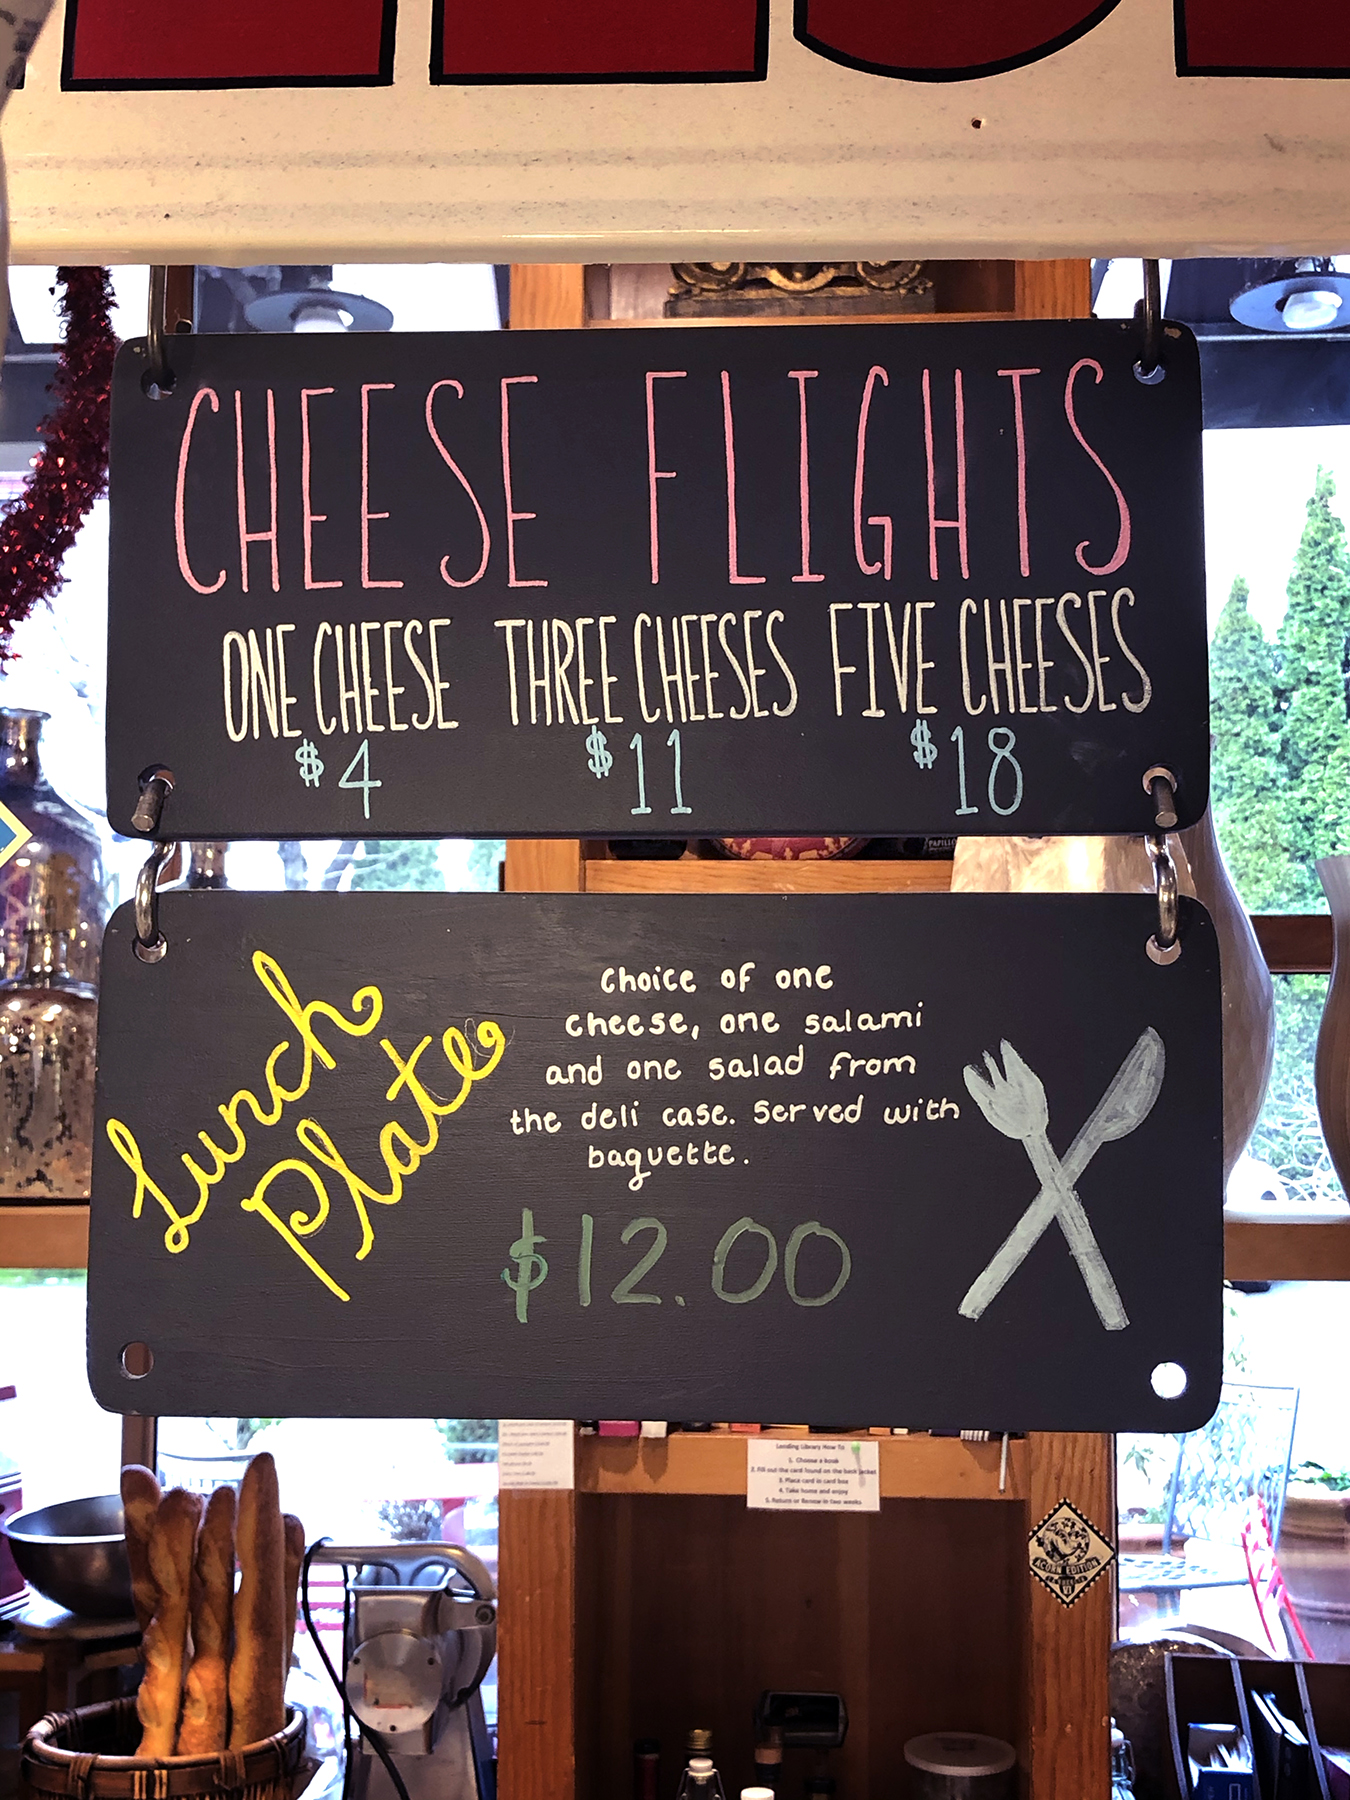 CHEESE FLIGHTS
ONE CHEESE THREE CHEESES FIVE CHEESES
$4 $11 $18
Lunch
Plate
Choice of one
cheese, one salami
and one salad from
the deli case. Served with
baguette.
$12.00
PAPILLO
Lending Library How To
1. Choose a book
2. Fill out the card found on the back jacket
3. Place card in card box
4. Take home and enjoy
5. Return or Renew in two weeks
ACORN EDITION